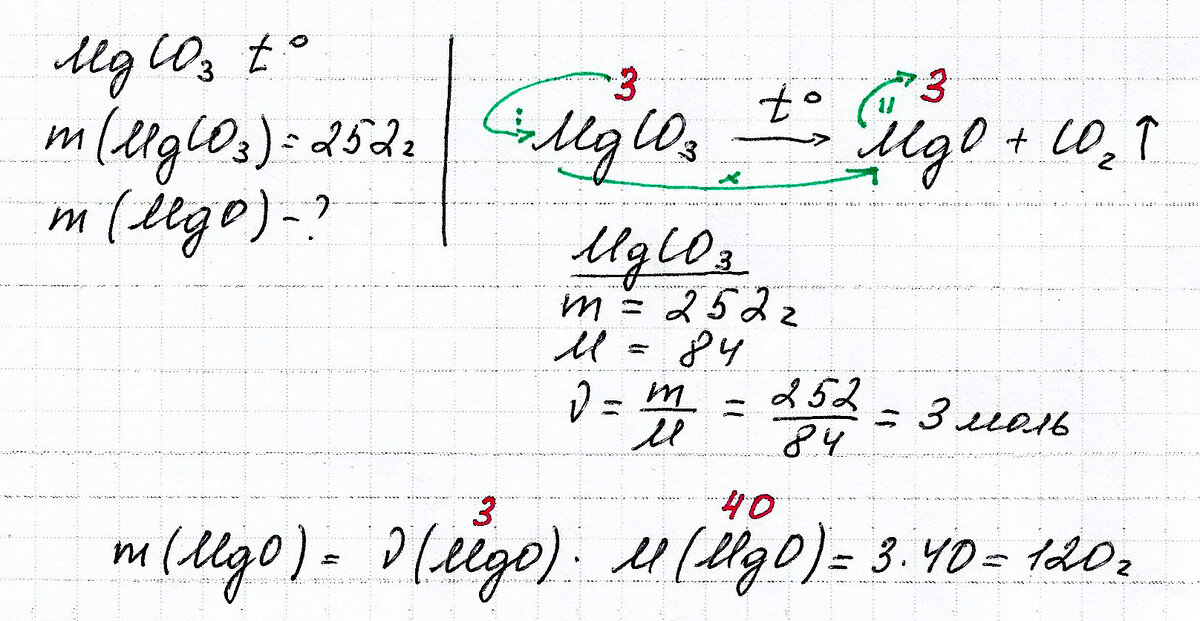 MgCO₃ t°
m(MgCO₃) = 252г
m(MgO) - ?
3 t° 3
: MgCO₃ → MgO + CO₂↑
x
MgCO₃
m = 252г
M = 84
ν = m/M = 252/84 = 3 моль
3 40
m(MgO) = ν(MgO) · M(MgO) = 3·40 = 120г